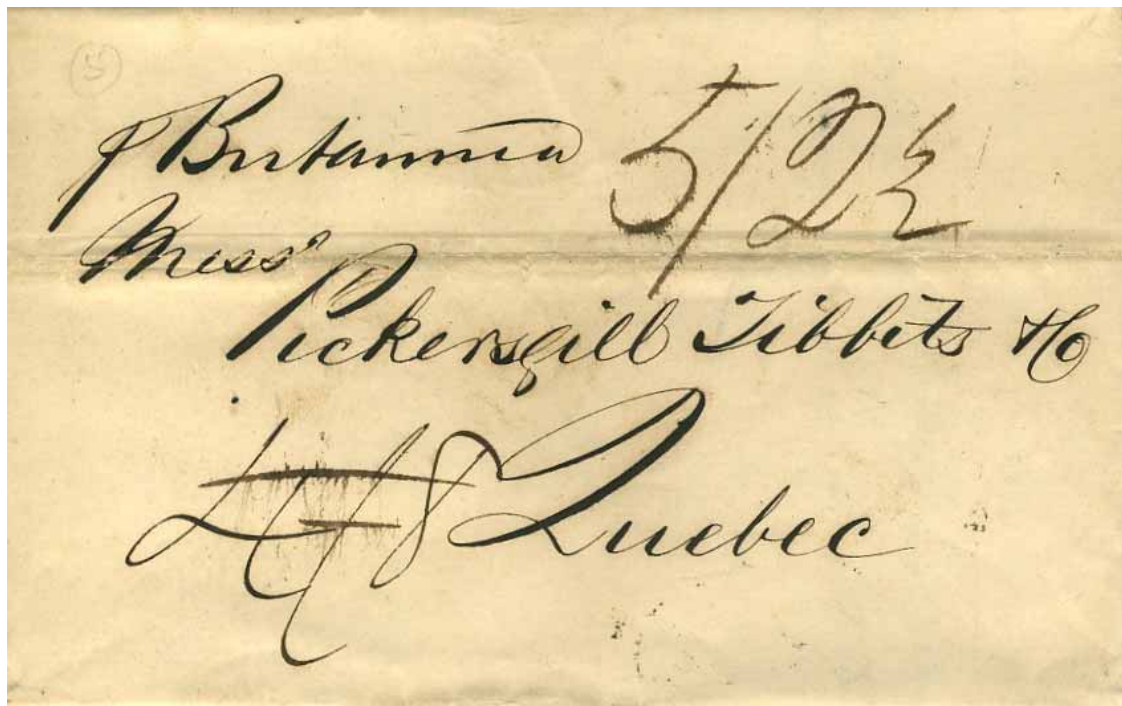 5
p Britannia 5/2½
Messrs
Pickersgill Tibbits & Co
Quebec